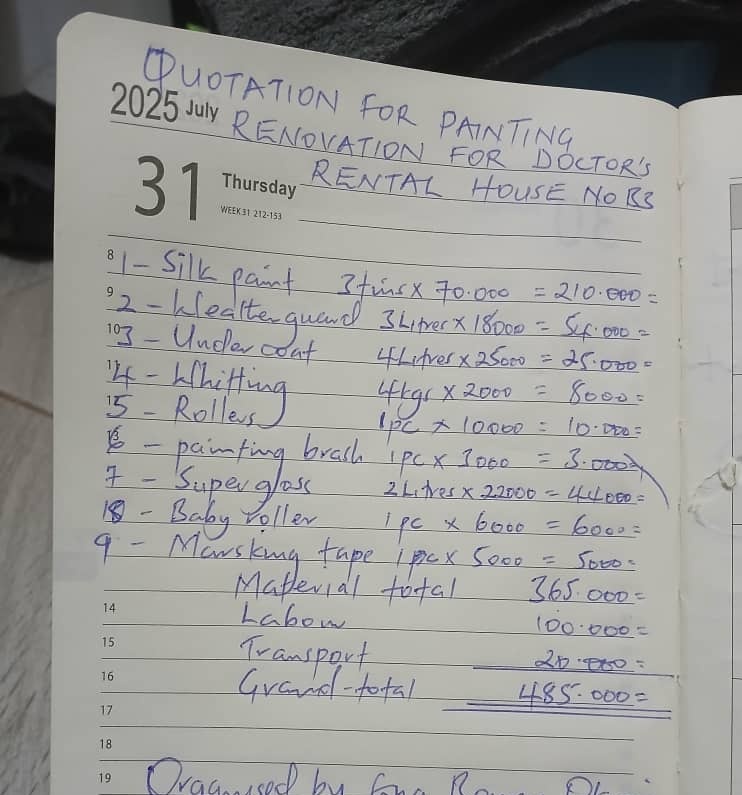 QUOTATION FOR PAINTING
2025 July RENOVATION FOR DOCTOR'S
31 Thursday RENTAL HOUSE NO B3
WEEK 31 212-153
8 1- Silk paint 3tins x 70.000 = 210.000=
9 2 - Weatherguard 3Litres x 18000 = 54.000=
10 3 - Undercoat 4Litres x 25000 = 25.000=
11 4 - Whitting 4kgs x 2000 = 8000=
5 - Rollers 1pc x 10000 = 10.000=
6 - painting brash 1pc x 3000 = 3.000=
7 - Super gloss 2Litres x 22000 = 44000=
8 - Baby roller 1pc x 6000 = 6000=
9 - Marsking tape 1pc x 5000 = 5000=
Material total 365.000=
14 Labour 100.000=
15 Transport 20.000=
16 Grand-total 485.000=
17
18
19 Organised by Eng